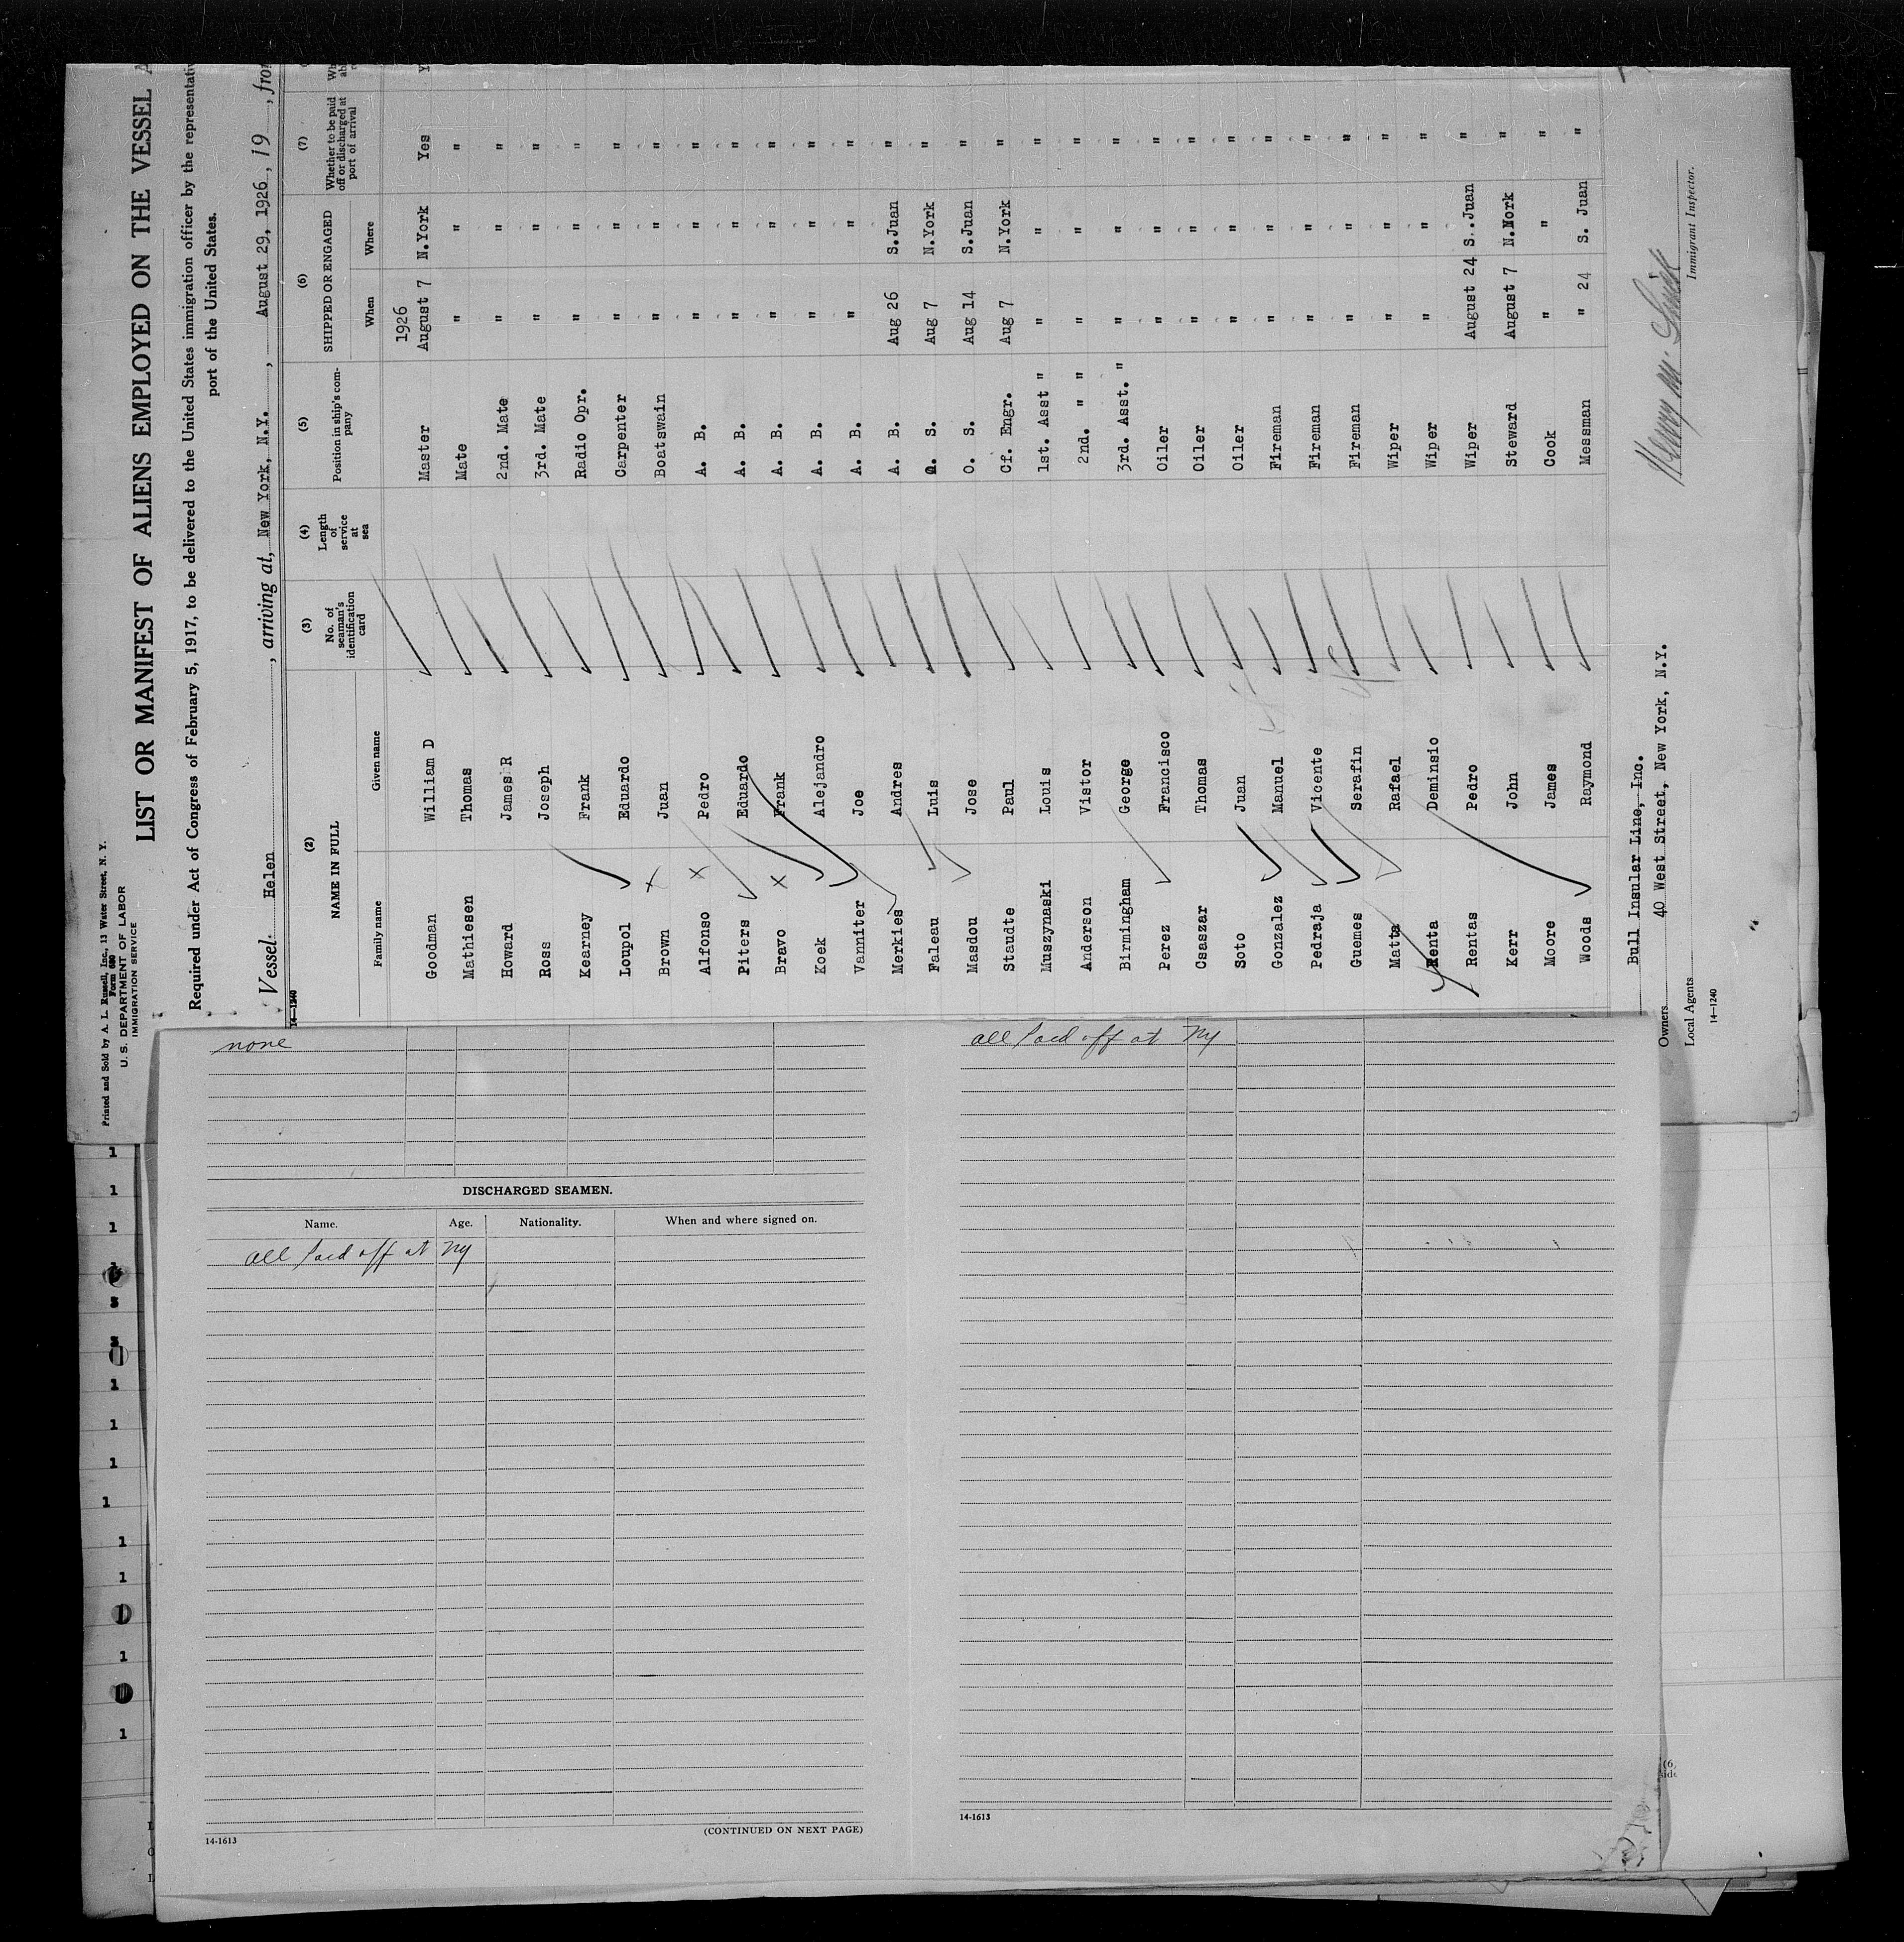 Printed and Sold by A. L. Russell, Inc., 13 Water Street, N. Y.
Form 680
U. S. DEPARTMENT OF LABOR
IMMIGRATION SERVICE
LIST OR MANIFEST OF ALIENS EMPLOYED ON THE VESSEL A
Required under Act of Congress of February 5, 1917, to be delivered to the United States immigration officer by the representativ
port of the United States.
Vessel Helen , arriving at, New York, N.Y. , August 29, 1926, 19 , from
14—1240
(2) NAME IN FULL (3) No. of seaman's identification card (4) Length of service at sea (5) Position in ship's company (6) SHIPPED OR ENGAGED (7) Whether to be paid off or discharged at port of arrival
Family name Given name When Where
1926
Goodman William D Master August 7 N.York Yes
Mathiesen Thomas Mate " " "
Howard James R 2nd. Mate " " "
Ross Joseph 3rd. Mate " " "
Kearney Frank Radio Opr. " " "
Loupol Eduardo Carpenter " " "
Brown Juan Boatswain " " "
Alfonso Pedro A. B. " " "
Piters Eduardo A. B. " " "
Bravo Frank A. B. " " "
Koek Alejandro A. B. " " "
Vanniter Joe A. B. " " "
Merkies Andres A. B. Aug 26 S.Juan "
Faleau Luis O. S. Aug 7 N.York "
Masdou Jose O. S. Aug 14 S.Juan "
Staudte Paul Cf. Engr. Aug 7 N.York "
Muszynaski Louis 1st. Asst " " " "
Anderson Vistor 2nd. " " " " "
Birmingham George 3rd. Asst. " " " "
Perez Francisco Oiler " " "
Csaszar Thomas Oiler " " "
Soto Juan Oiler " " "
Gonzalez Manuel Fireman " " "
Pedraja Vicente Fireman " " "
Guemes Serafin Fireman " " "
Matta Rafael Wiper " " "
Renta Deminsio Wiper " " "
Rentas Pedro Wiper August 24 S..Juan "
Kerr John Steward August 7 N.Mork "
Moore James Cook " " "
Woods Raymond Messman " 24 S. Juan "
Owners Bull Insular Line, Inc.
40 West Street, New York, N.Y.
Local Agents
Immigrant Inspector.
14—1240
none
DISCHARGED SEAMEN.
Name. Age. Nationality. When and where signed on.
all paid off at NY
14-1613
(CONTINUED ON NEXT PAGE)
all paid off at NY
14-1613